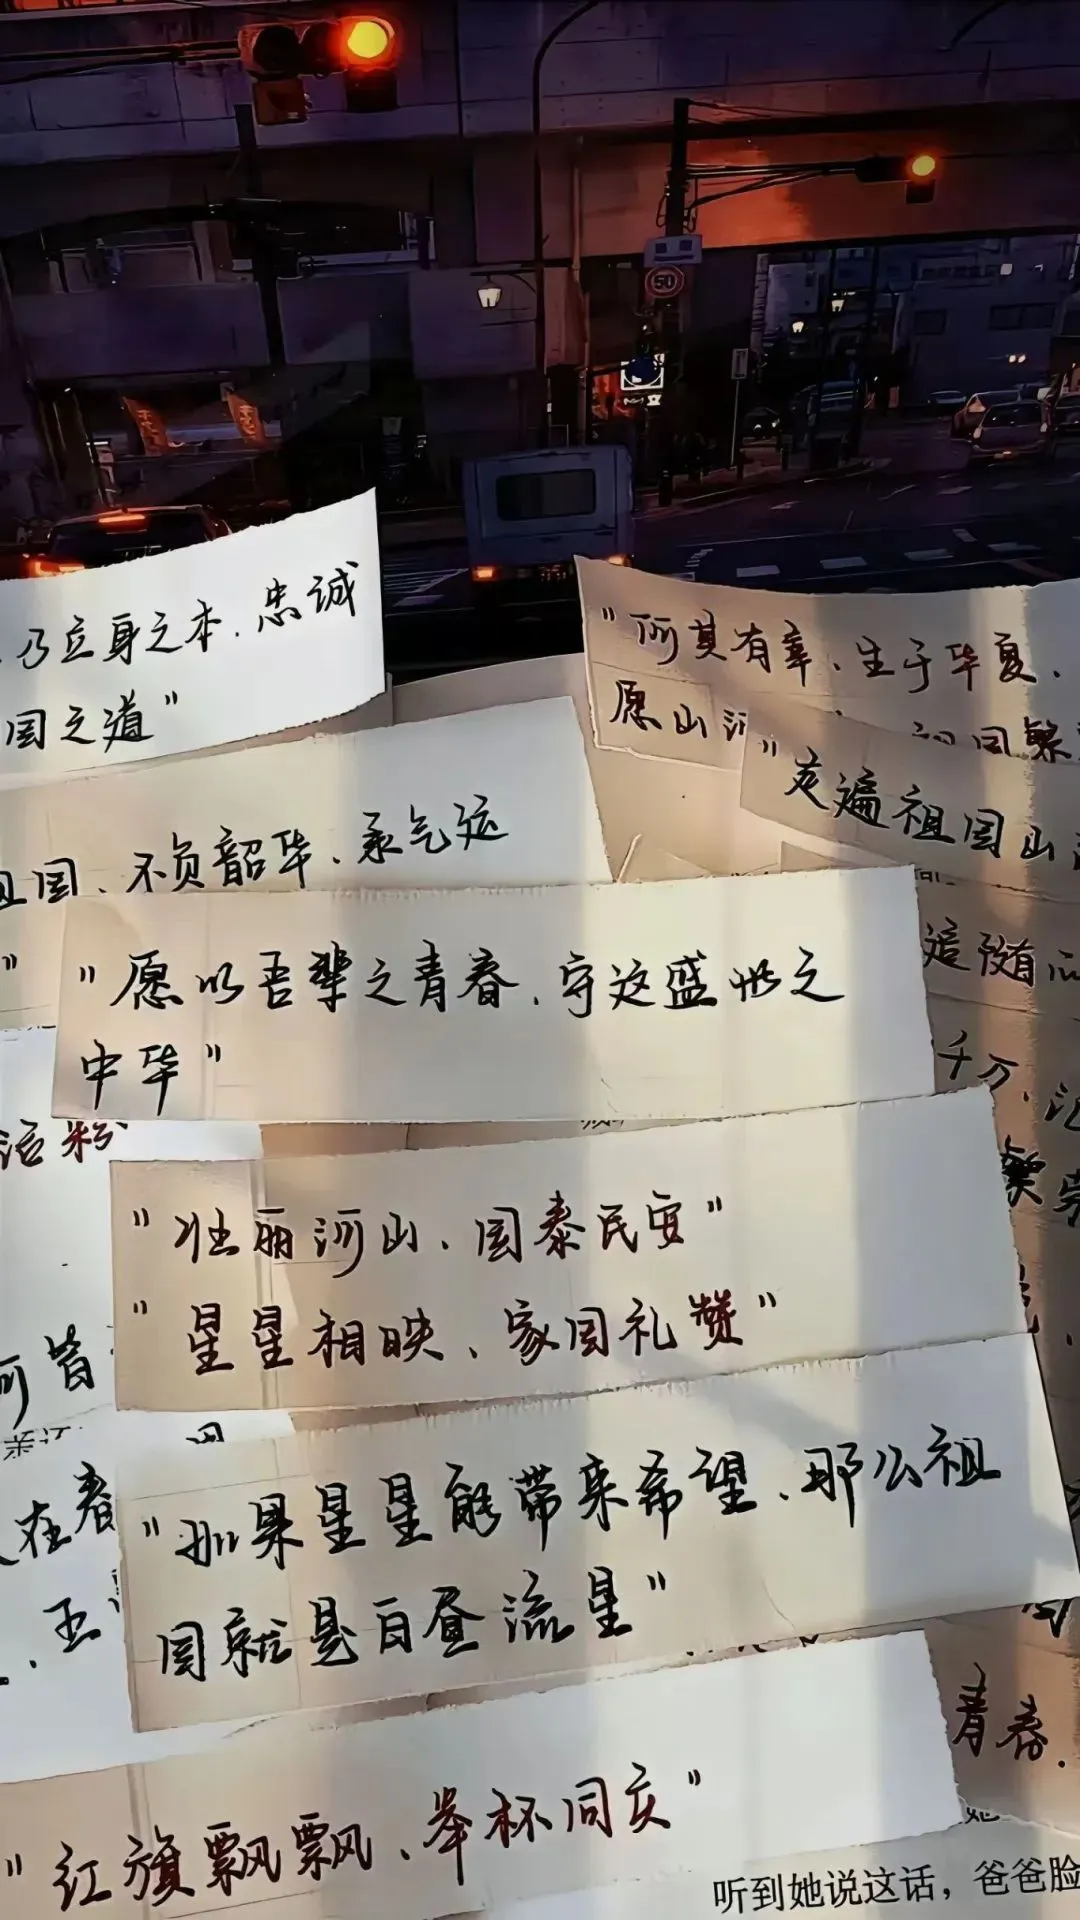 乃立身之本、忠诚
国之道"
"何其有幸、生于华夏、
愿山河
"走遍祖国山
祖国、不负韶华、承气运
"
"愿以吾辈之青春、守这盛世之
中华"
追随
千万、汇
繁荣
活粉
"壮丽河山、国泰民安"
"星星相映、家国礼赞"
河皆
在春
"如果星星能带来希望、那么祖
国就是白昼流星"
、玉
青春、
"红旗飘飘、举杯同庆"
听到她说这话，爸爸脸
50